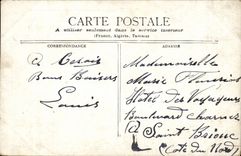 CARTE POSTALE
A utiliser seulement dans le service intérieur
(France, Algérie, Tunisie)
CORRESPONDANCE
ADRESSE
à
Bons Baisers
Louis
Mademoiselle
Marie
Hôtel des Voyageurs
Boulevard Charner
à Saint Brieuc
Côte du Nord